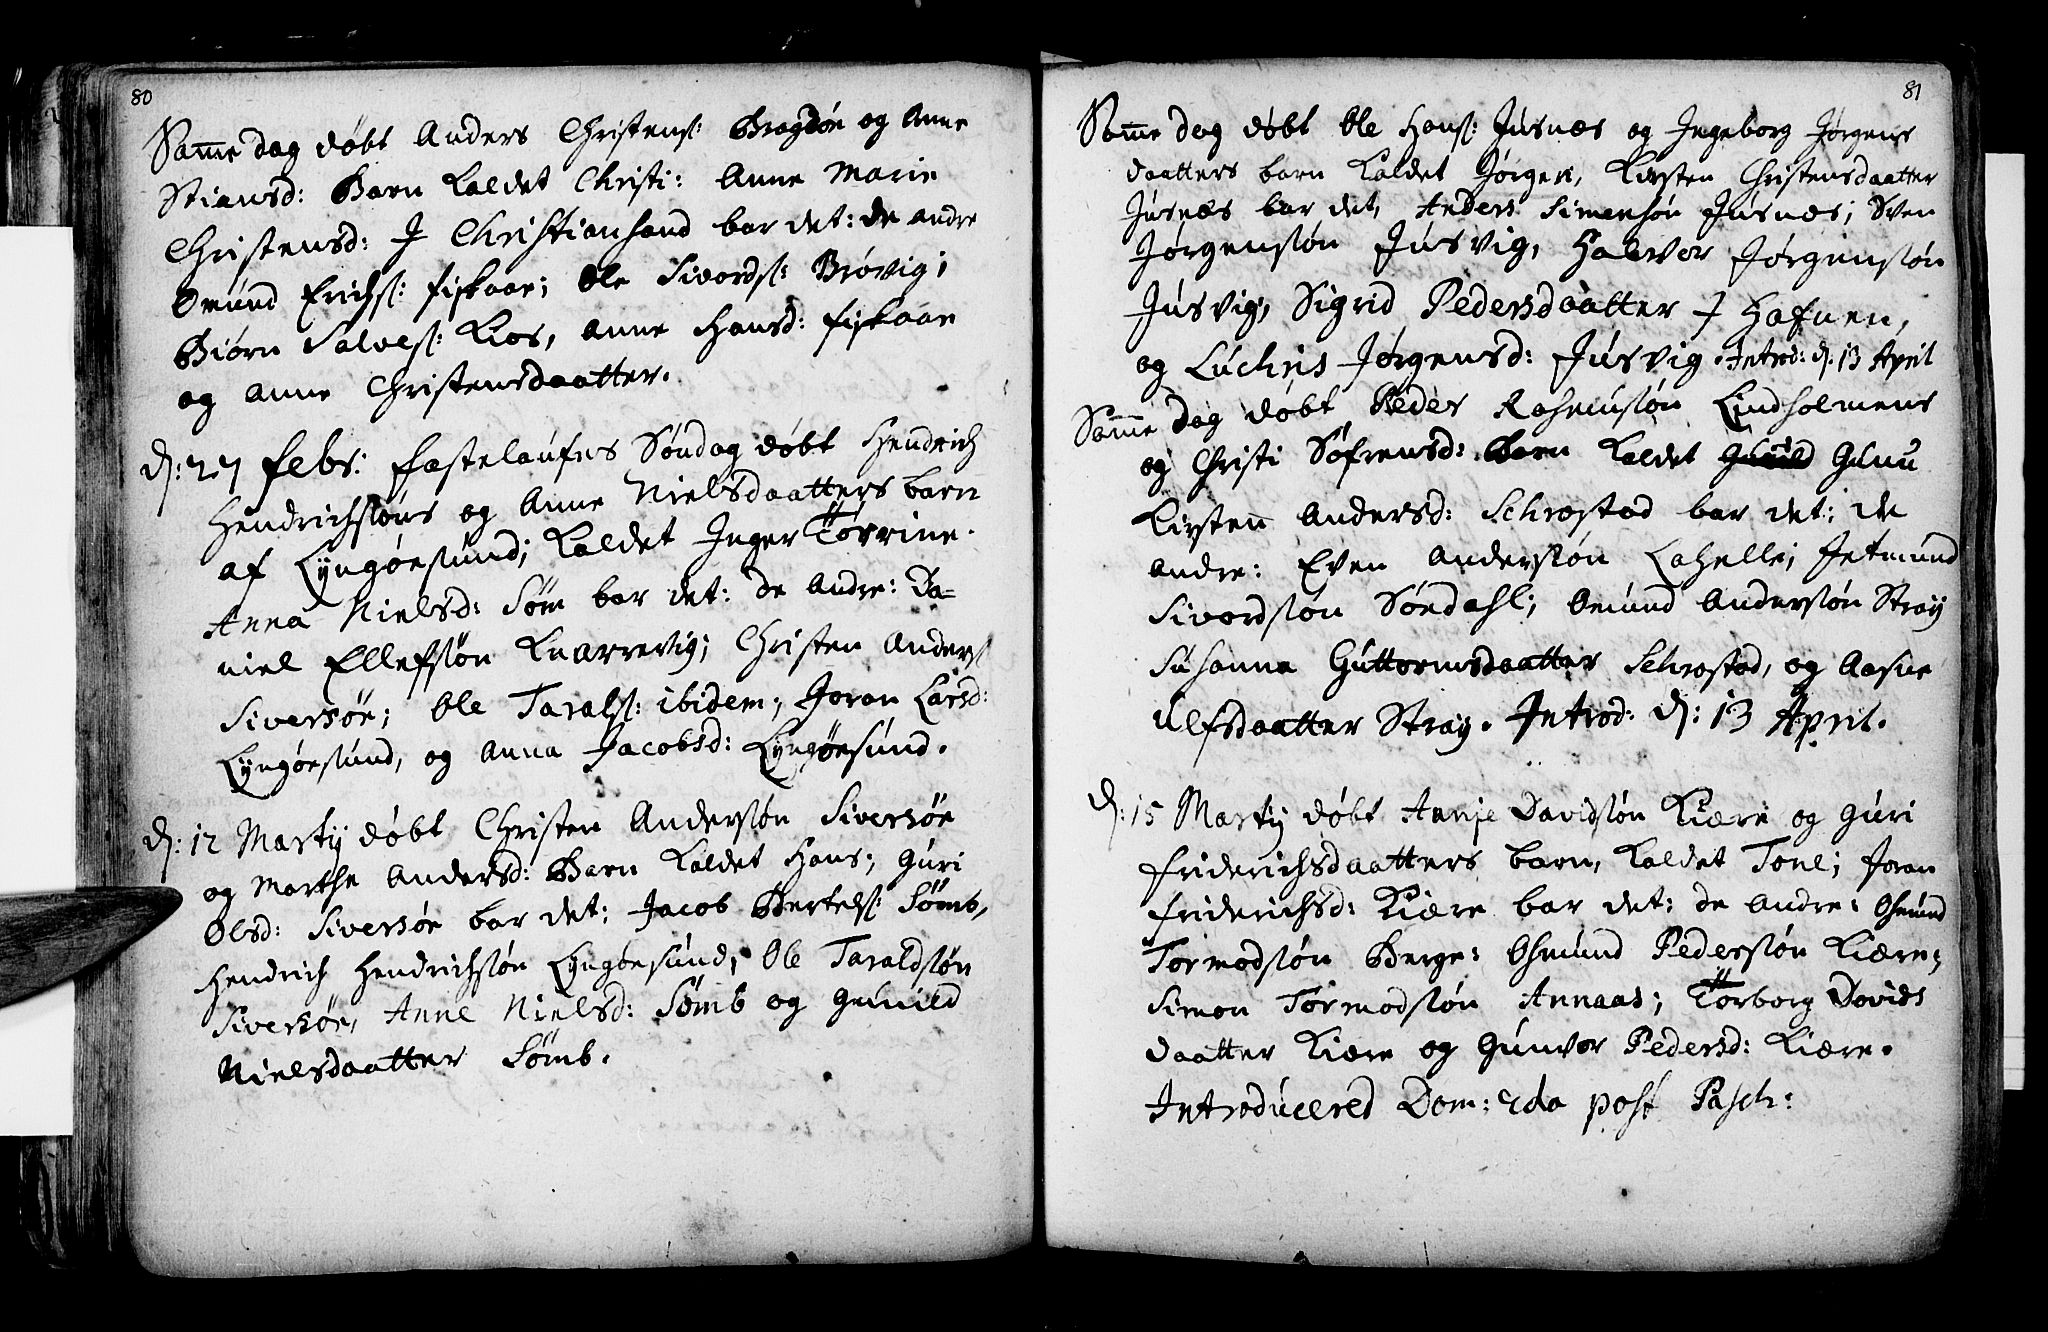 80
Samme dag døbt Anders Christens: Bragdøe og Anne
Stiansd: Barn kaldet Christi: Anne Marie
Christensd: J Christiansand bar det: de andre
Omund Erichs: fiskaae; Ole Sivords: Brøvig;
Biørn Salves: Kios, Anne Hansd: fiskaae
og Anne Christensdaatter.
d: 27 febr: fastelaufns Søndag døbt Hendrich
Hendrichsøns og Anne Nielsdaatters barn
af Lyngøesund; kaldet Inger Torrine.
Anna Nielsd: Søm bar det: de Andre: Da-
niel Ellefsøn Knarrevig; Christen Anders
Siversøe; Ole Tarals: ibidem; Joran Larsd:
Lyngøesund, og Anna Jacobsd: Lyngøesund.
d: 12 Martij døbt Christen Andersøn Siversøe
og Marthe Andersd: Barn kaldet Hans; Guri
Olsd: Siversøe bar det; Jacob Bertels: Sømb,
Hendrich Hendrichsøn Lyngøesund; Ole Taraldsøn
Siversøe, Anne Nielsd: Sømb og Gunild
Nielsdaatter Sømb.
81
Samme dag døbt Ole Hans: Jusnæs og Ingeborg Jørgens
daatters barn kaldet Jørgen, Kirsten Christensdaatter
Jusnæs bar det, Anders Simensøn Jusnæs; Sven
Jørgensøn Jusvig, Halvor Jørgensøn
Jusvig, Sigrid Pedersdaatter J Hafnen,
og Luchris Jørgensd: Jusvig. Introd: d: 13 April
Samme dag døbt Peder Rasmusøn Lindholmens
og Christi Søfrensd: Barn kaldet Gunu
Kirsten Andersd: Schrostad bar det; de
andre: Even Andersøn Lahelle; Jetmund
Sivordsøn Søedahl; Omund Andersøn Strøy
Susanna Guttormsdaatter Schrostad, og Aasne
Ulfsdaatter Strøy. Introd: d: 13 April.
d: 15 Martij døbt Annje Davidsøn Kiære og Guri
friderichsdaatters barn, kaldet Tone; Joran
friderichsd: Kiære bar det: de Andre: Osmund
Tormodsøn Berge: Osmund Pedersøn Kiære;
Simon Tormodsøn Annaas; Torborg Davids
daatter Kiære og Gunvor Pedersd: Kiære.
Introduceret Dom: 2da post Pasch: